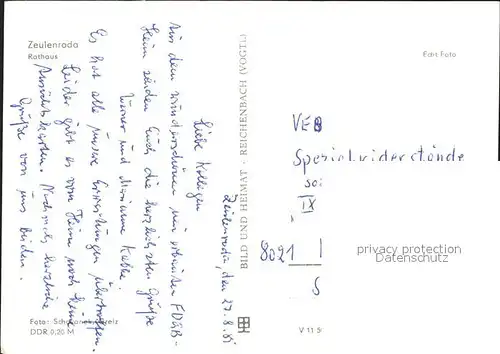 Zeulenroda
Rathaus
Echt Foto
Zeulenroda, den 27.8.85
Liebe Kollegen
Aus dem wunderschönen neu erbauten FDGB-
Heim senden Euch die herzlichsten Grüße
Werner und Marianne
Es hat alle unsere Erwartungen übertroffen.
Leider gibt es vom Heim noch keine
Ansichtskarten. Nochmals herzliche
Grüße von uns beiden.
BILD UND HEIMAT · REICHENBACH (VOGTL
VEB
Spezialwiderstände
IX
8021
S
privacy protection
Datenschutz
Foto:
DDR 0,20 M
V 11 5